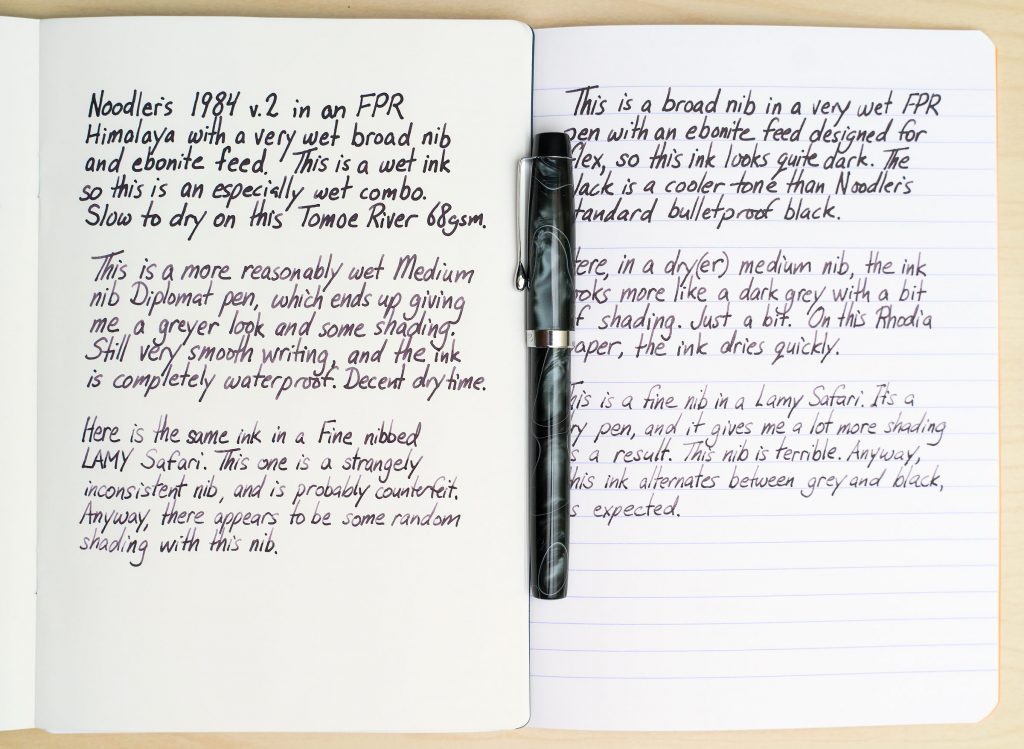 Noodler's 1984 v.2 in an FPR
Himalaya with a very wet broad nib
and ebonite feed. This is a wet ink
so this is an especially wet combo.
Slow to dry on this Tomoe River 68gsm.
This is a more reasonably wet Medium
nib Diplomat pen, which ends up giving
me a greyer look and some shading.
Still very smooth writing, and the ink
is completely waterproof. Decent dry time.
Here is the same ink in a Fine nibbed
LAMY Safari. This one is a strangely
inconsistent nib, and is probably counterfeit.
Anyway, there appears to be some random
shading with this nib.
This is a broad nib in a very wet FPR
pen with an ebonite feed designed for
flex, so this ink looks quite dark. The
black is a cooler tone than Noodler's
standard bulletproof black.
Here, in a dry(er) medium nib, the ink
looks more like a dark grey with a bit
of shading. Just a bit. On this Rhodia
paper, the ink dries quickly.
This is a fine nib in a Lamy Safari. It's a
dry pen, and it gives me a lot more shading
as a result. This nib is terrible. Anyway,
this ink alternates between grey and black,
as expected.